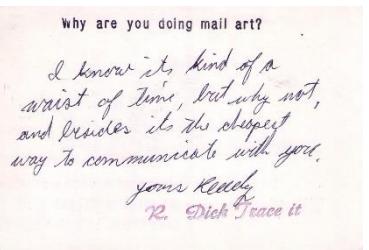 Why are you doing mail art?
I know its kind of a
waist of time, but why not,
and besides its the cheapest
way to communicate with you.
yours
R. Dick Trace it